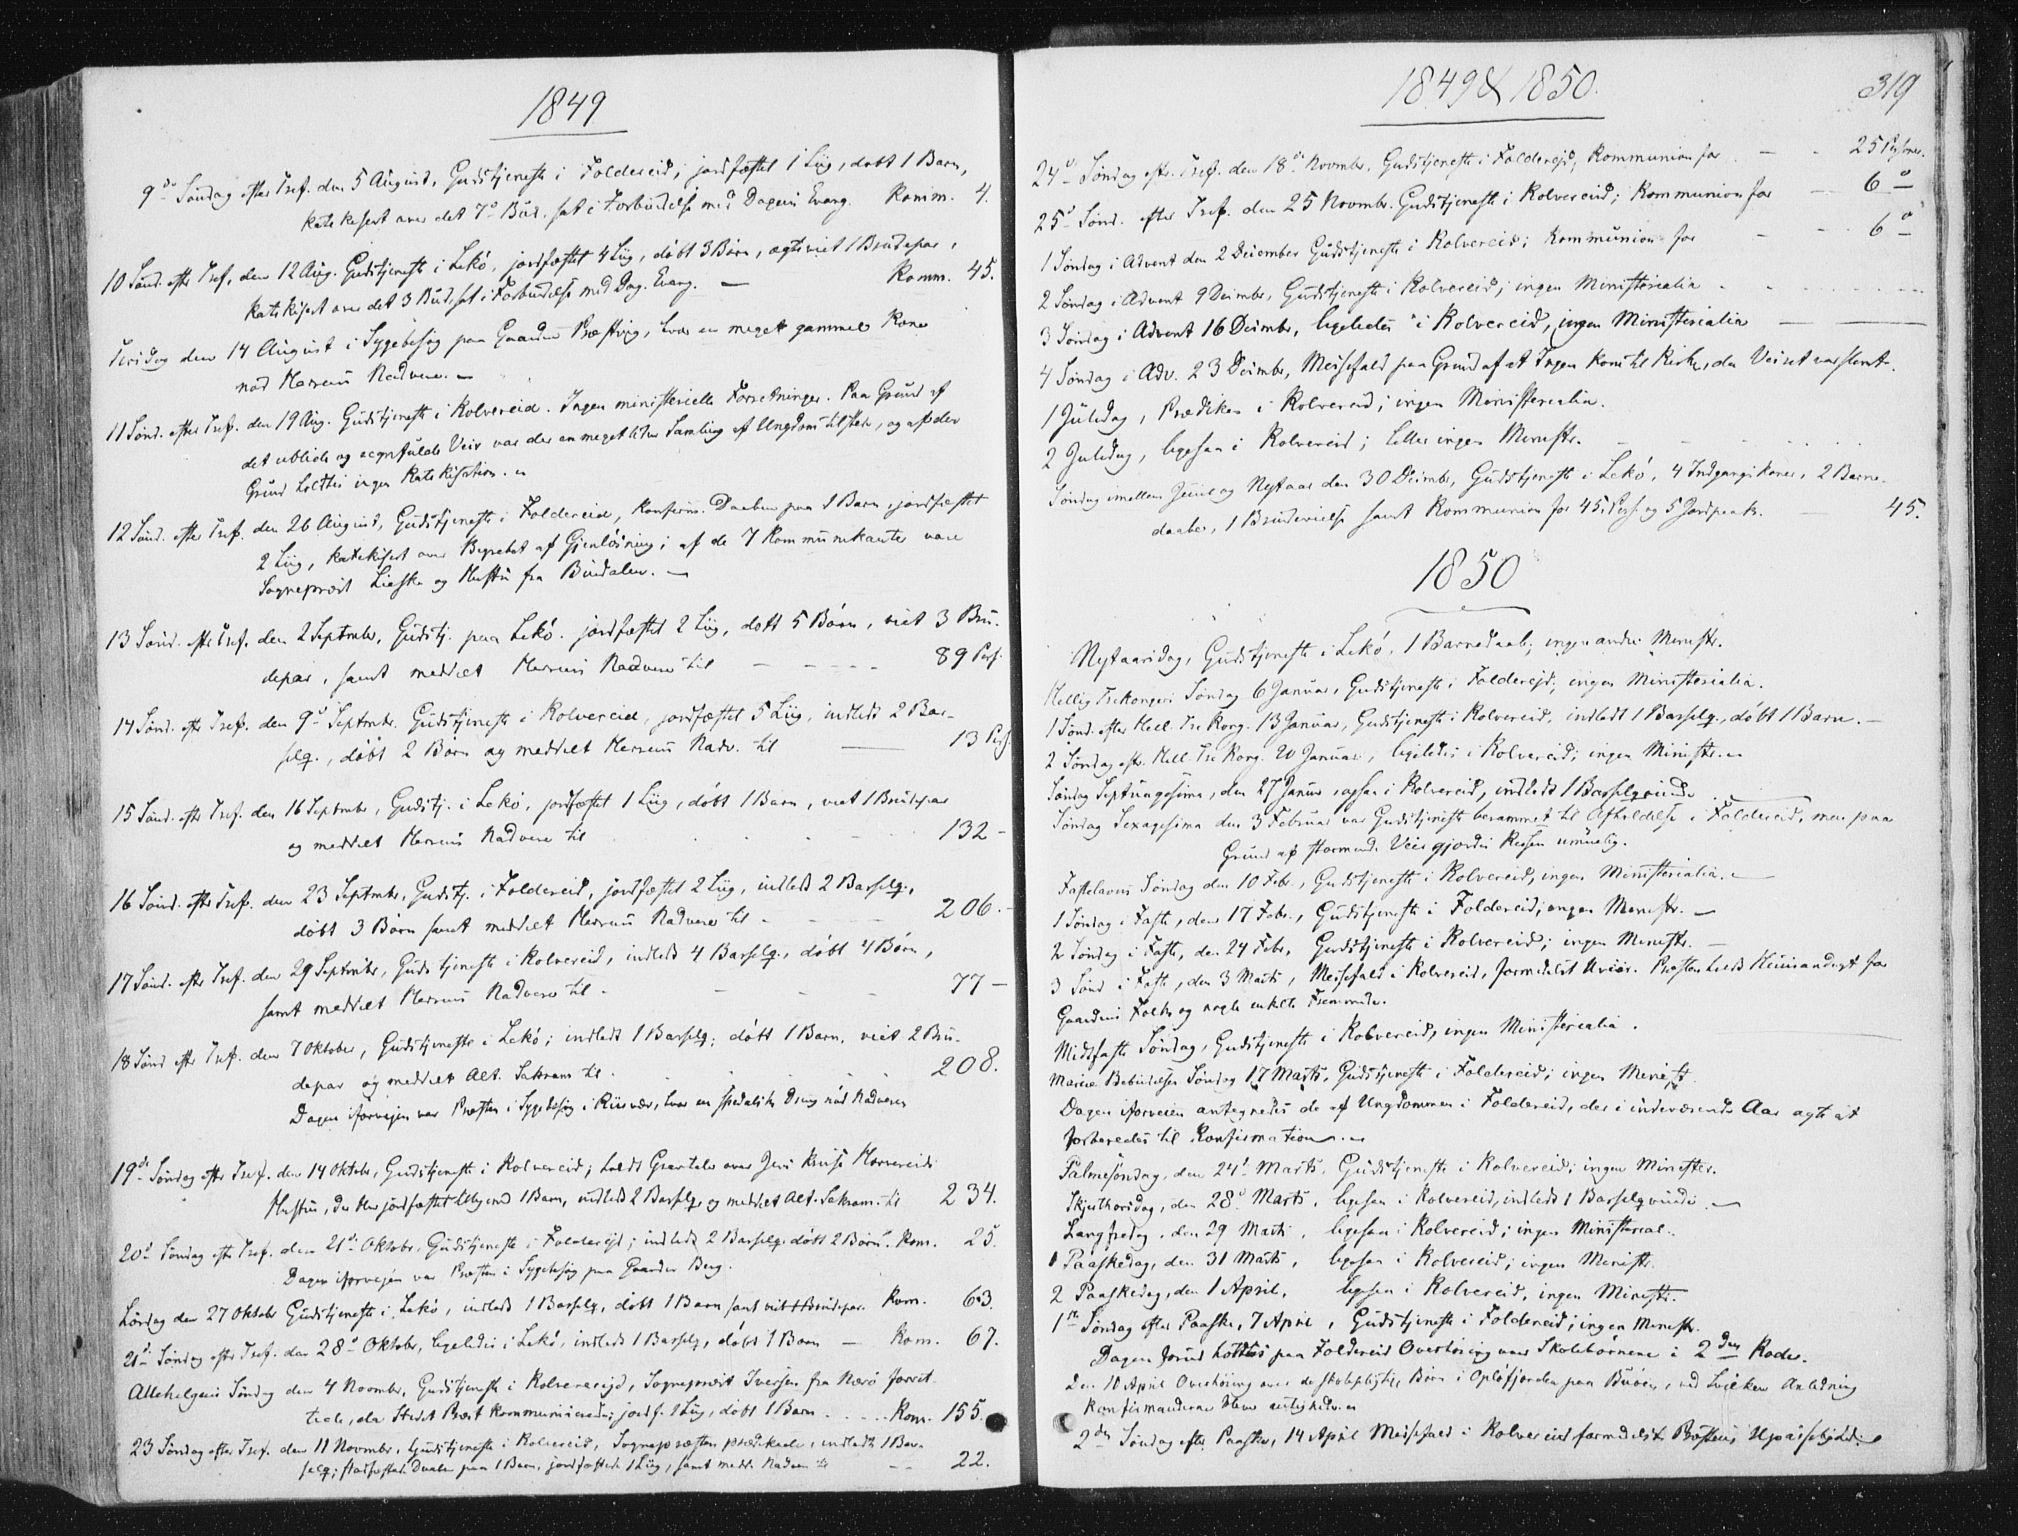 1849
9de Søndag efter Tref. den 5 August, Gudstjeneste i Foldereid, jordfæstet 1 Liig, døbt 1 Barn,
katekiseret over det 7de Bud. sat i Forbindelse med Dagens Evang. Komm. 4.
10 Sønd. efter Tref. den 12 Aug. Gudstjeneste i Lekø, jordfæstet 4 Liig, døbt 3 Børn, ægteviet 1 Brudepar,
katekiseret over det 3 Bud, sat i Forbindelse med Dag. Evang. — Komm. 45.
Tirsdag den 14 August i Sygebesøg paa Gaarden Præstvig, hvor en meget gammel Kone
nød Herrens Nadvere. —
11 Sønd. efter Tref. den 19 Aug. Gudstjeneste i Kolvereid. Ingen ministerielle Forretninger. Paa Grund af
det ublide og regnfulde Veir var der en meget liden Samling af Ungdom tilstede, og af den
Grund holdtes ingen Katekisation. —
12 Sønd. efter Tref. den 26 August, Gudstjeneste i Foldereid, konfirm. Daaben paa 1 Barn, jordfæstet
2 Liig, katekiseret over Begrebet af Gjenløsning; af de 7 Kommunikanter vare
Sognepræst Hustru fra Bindalen. —
13 Sønd. efter Tref. den 2 Septmbr, Gudstj. paa Lekø. jordfæstet 2 Liig, døbt 5 Børn, viet 3 Bru-
depar, samt meddelt Herrens Nadvere til — — — 89 Pers.
14 Sønd. efter Tref. den 9de Septmbr. Gudstjeneste i Kolvereid, jordfæstet 5 Liig, indledt 2 Bar-
selq., døbt 2 Børn og meddelt Herrens Nadv. til — 13 Pers.
15 Sønd. efter Tref. den 16 Septmbr, Gudstj. i Lekø, jordfæstet 1 Liig, døbt 1 Barn, viet 1 Brudepar
og meddelt Herrens Nadvere til 132 —
16 Sønd. efter Tref. den 23 Septmbr, Gudstj. i Foldereid, jordfæstet 2 Liig, indledt 2 Barselq.,
døbt 3 Børn samt meddelt Herrens Nadvere til — 206. —
17 Sønd. efter Tref. den 29 Septmbr, Gudstjeneste i Kolvereid, indledt 4 Barselq., døbt 4 Børn,
samt meddelt Herrens Nadvere til — 77 —
18 Sønd efter Tref. den 7 Oktober, Gudstjeneste i Lekø; indledt 1 Barselq; døbt 1 Barn, viet 2 Bru-
depar og meddelt Alt. Sakram til 208.
Dagen iforveien var Præsten i Sygebesøg i Riisvær, hvor en spedalsk Dreng nød Nadveren
19de Søndag efter Tref. den 14 Oktobr, Gudstjeneste i Kolvereid; holdt Gravtale over Jens
Hustru, der blev jordfæstet tilligemed 1 Barn, indledt 2 Barselq. og meddelt Alt. Sakram. til 234.
20de Søndag efter Tref. den 21de Oktobr, Gudstjeneste i Foldereid; indledt 2 Barselq. døbt 2 Børn. Kom. 25.
Dagen iforveien var Præsten i Sygebesøg paa Gaarden Berg.
Lørdag den 27 Oktobr Gudstjeneste i Lekø, indledt 1 Barselq, døbt 1 Barn samt viet 1 Brudepar. Kom. 63.
21de Søndag efter Tref. den 28de Oktobr, ligeledes i Lekø, indledt 1 Barselq, døbt 1 Barn — Kom. 67.
Allehelgens Søndag den 4 Novmbr, Gudstjeneste i Kolvereid, Sognepræst Iversen fra Nærø forret-
tede, da Stedets Præst kommunicerede; jordf. 1 Liig, døbt 1 Barn . . . Kom. 155.
23 Søndag efter Tref. den 11 Novmbr, Gudstjeneste i Kolvereid, Sognepræsten prædikede, indledt 1 Bar-
selq; stadfæstede Daaben paa 1 Barn, jordfæstede 1 Liig, samt medd. Nadver til — 22.
1849 & 1850.
319
24de Søndag eft. Tref. den 18de Novmbr, Gudstjeneste i Foldereid, Kommunion for — 25 Personer.
25de Sønd. efter Tref. den 25 Novmbr. Gudstjeneste i Kolvereid; Kommunion for — 6 —
1 Søndag i Advent den 2 December Gudstjeneste i Kolvereid; Kommunion for — 6 —
2 Søndag i Advent 9 Decmbr, Gudstjeneste i Kolvereid; ingen Ministerialia
3 Søndag i Advent 16 Decmbr, ligeledes i Kolvereid, ingen Ministerialia —
4 Søndag i Adv. 23 Decmbr, Messefald paa Grund af at Ingen kom til Kirke, da Veiret var slemt.
1 Juledag, Prædiken i Kolvereid; ingen Ministerialia.
2 Juledag, ligesaa i Kolvereid; heller ingen Ministr.
Søndag imellem Juul og Nytaar den 30 Decmbr, Gudstjeneste i Lekø, 4 Indgangskoner, 2 Barne-
daaber, 1 Brudevielse samt Kommunion for 45 Pers. og 5 Jordpaak. — 45.
1850
Nytaarsdag, Gudstjeneste i Lekø, 1 Barnedaab; ingen andre Ministr.
Hellig Trekongers Søndag 6 Januar, Gudstjeneste i Foldereid; ingen Ministerialia.
1 Sønd. efter Hell. Tre Kong. 13 Januar, Gudstjeneste i Kolvereid, indledt 1 Barselq., døbt 1 Barn. —
2 Søndag eft. Hell. Tre Kong. 20 Januar, ligeledes i Kolvereid; ingen Ministr. —
Søndag Septuagesima, den 27 Januar, ligesaa i Kolvereid, indledt 1 Barselqvinde
Søndag Sexagesima den 3 Februar var Gudstjeneste berammet til Afholdelse i Foldereid, men paa
Grund af stormende Veir gjordes Reisen umuelig.
Fastelavns Søndag den 10 Febr, Gudstjeneste i Kolvereid, ingen Ministerialia. —
1 Søndag i Faste, den 17 Febr, Gudstjeneste i Foldereid; ingen Ministr. —
2 Søndag i Faste, den 24 Febr, Gudstjeneste i Kolvereid; ingen Ministr. —
3 Sønd i Faste, den 3 Marts, Messefald i Kolvereid, formedelst Uveir. Præsten holdt Huusandagt for
Gaardens Folk og nogle enkelte Fremmede.
Midfaste Søndag, Gudstjeneste i Kolvereid, ingen Ministerialia.
Mariæ Bebudelses Søndag 17 Marts, Gudstjeneste i Foldereid; ingen Ministr.
Dagen iforveien antegnedes de af Ungdommen i Foldereid, der i indeværende Aar agte at
forberedes til Konfirmation. —
Palmesøndag, den 24de Marts, Gudstjeneste i Kolvereid; ingen Minister.
Skjærthorsdag, den 28de Marts, ligesaa i Kolvereid, indledt 1 Barselqvinde. —
Langfredag, den 29 Marts, ligesaa i Kolvereid; ingen Ministerial.
1 Paaskedag, den 31 Marts, ligesaa i Kolvereid; ingen Ministr.
2 Paaskedag, den 1 April, ligesaa i Kolvereid, ingen Ministr.
1ste Søndag efter Paaske, 7 April, Gudstjeneste i Foldereid; ingen Ministr.
Dagen forud holdtes paa Foldereid Overhøring over Skolebørnene i 2den Rode.
Den 10 April Overhøring over de skolepligtige Børn i Opløfjorden paa Buøen, ved hvilken Anledning
Konfirmanderne bleve antegnede. —
2den Søndag efter Paaske, 14 April Messefald i Kolvereid formedelst Præstens Upasselighed.